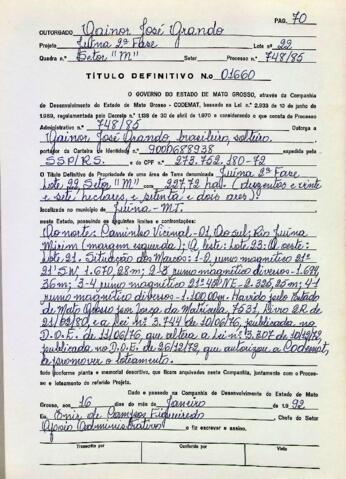 PÁG. 70
OUTORGADO Vainor José Grando
Projeto Juína 2ª Fase Lote nº 22
Quadra nº Setor "M" Setor Processo nº 748/85
TÍTULO DEFINITIVO N.o 01660
O GOVERNO DO ESTADO DE MATO GROSSO, através da Companhia
de Desenvolvimento do Estado de Mato Grosso - CODEMAT, baseado na Lei n.º 2.933 de 10 de junho de
1.969, regulamentada pelo Decreto n.º 1.128 de 30 de abril de 1970 e considerando o que consta do Processo
Administrativo n.º 748/85 Outorga a
Vainor José Grando, brasileiro, solteiro.
portador da Carteira de Identidade n.º 9000688938 expedida pela
SSP/RS. e do CPF n.º 273.752.180-72
O Título Definitivo de Propriedade de uma área de Terra denominada Juína 2ª Fase
Lote 22 Setor "M" com 227,72 ha. (duzentos e vinte
e sete hectares, e setenta e dois ares).
localizada no município de Juína-MT.
neste Estado, possuindo os seguintes limites e confrontações:
Ao norte: Caminho Vicinal-01. Ao sul: Rio Juína
Mirim (margem esquerda); A leste: Lote 23; A oeste:
Lote 21. Situação dos Marcos: 1-2 rumo magnético 21º
21' SW 1.670,28m; 2-3 rumo magnético diversos-1.694,
36m; 3-4 rumo magnético 21º 42' NE-2.325,25m; 4-1
rumo magnético diversos-1.100,00m. Havido pelo Estado
de Mato Grosso por força da Matrícula 7531, Livro 2R de
21/02/80, e a Lei nº 3.744 de 10/06/76, publicada no
D.O.E. de 11/06/76, que altera a Lei nº 3.307 de 10/12/72,
publicada no D.O.E. de 26/12/72, que autorizou a Codemat,
a promover o loteamento.
tudo conforme planta e memorial descritivo, que ficam arquivados nesta Companhia, juntamente com o Processo
e loteamento do referido Projeto.
Dado e passado na Companhia de Desenvolvimento do Estado de Mato
Grosso, aos 16 dias do mês de Janeiro de 1.992
Eu Enir de Campos Figueiredo Chefe do Setor
Apoio Administrativo o fiz escrever e assino.
Transcrito por Conferido por Visto